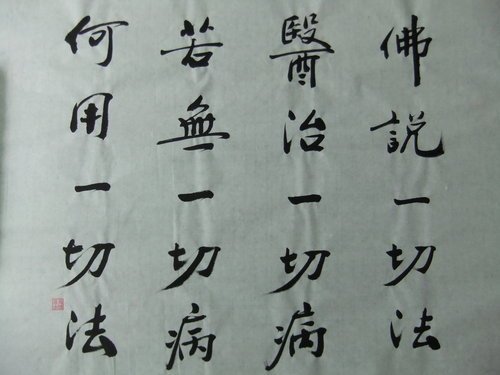 佛説一切法
醫治一切病
若無一切病
何用一切法